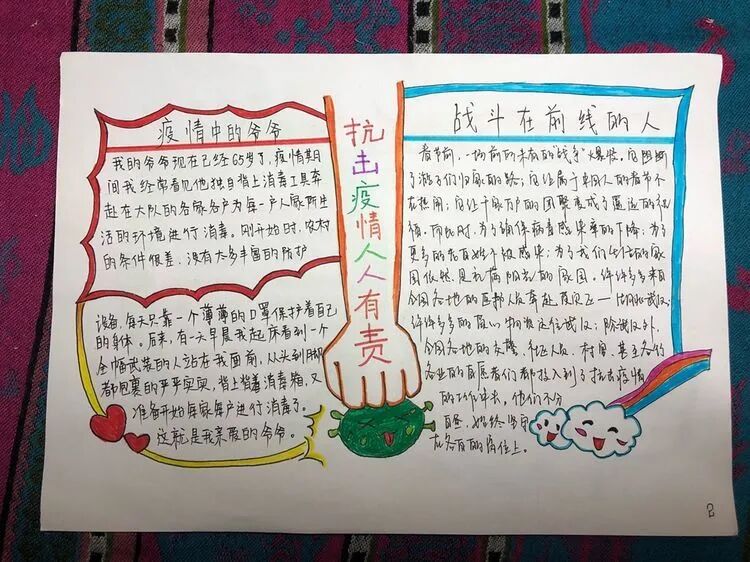 疫情中的爷爷
我的爷爷现在已经65岁了，疫情期
间我经常看见他独自背上消毒工具奔
赴在大队的各家各户为每一户人家所生
活的环境进行消毒。刚开始时，农村
的条件很差，没有太多丰富的防护
设备，每天只靠一个薄薄的口罩保护着自己
的身体。后来，有一天早晨我起床看到一个
全幅武装的人站在我面前，从头到脚
都包裹的严严实实，背上背着消毒箱，又
准备开始每家每户进行消毒了。
这就是我亲爱的爷爷。
抗击疫情人人有责
战斗在前线的人
春节前，一场前所未有的"战争"爆发。它阻断
了游子们归家的路；它让属于中国人的春节不
在热闹；它让千家万户的团聚变成了遥远的祝
福，而此时，为了确保病毒感染率的下降；为了
更多的老百姓不被感染；为了我们生活的家
园依然是充满阳光的家园。许许多多来自
全国各地的医护人员奔赴疫区——湖北武汉；
许许多多的医用物资运往武汉；除武汉外，
全国各地的交警、社区人员、村官、甚至各行
各业的百医者们都投入到了抗击疫情
的工作中去，他们不分
昼夜，始终坚守
在各自的岗位上。
2